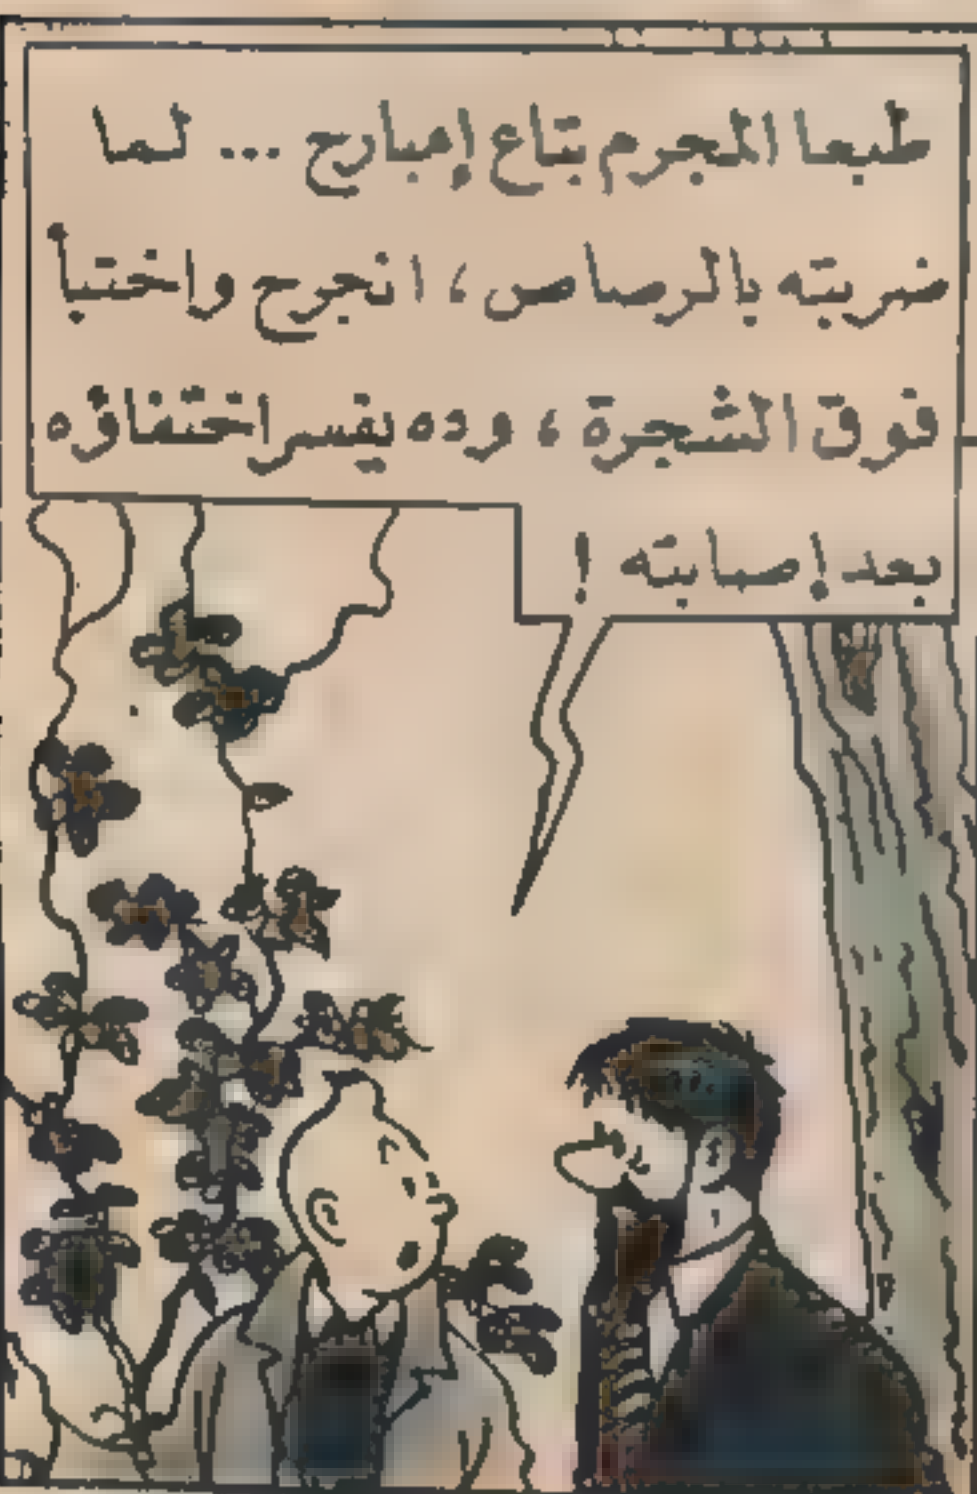 طبعا المجرم بتاع إمبارح ... لما
ضربته بالرصاص، انجرح واختبأ
فوق الشجرة، وده يفسر اختفاؤه
بعد إصابته!